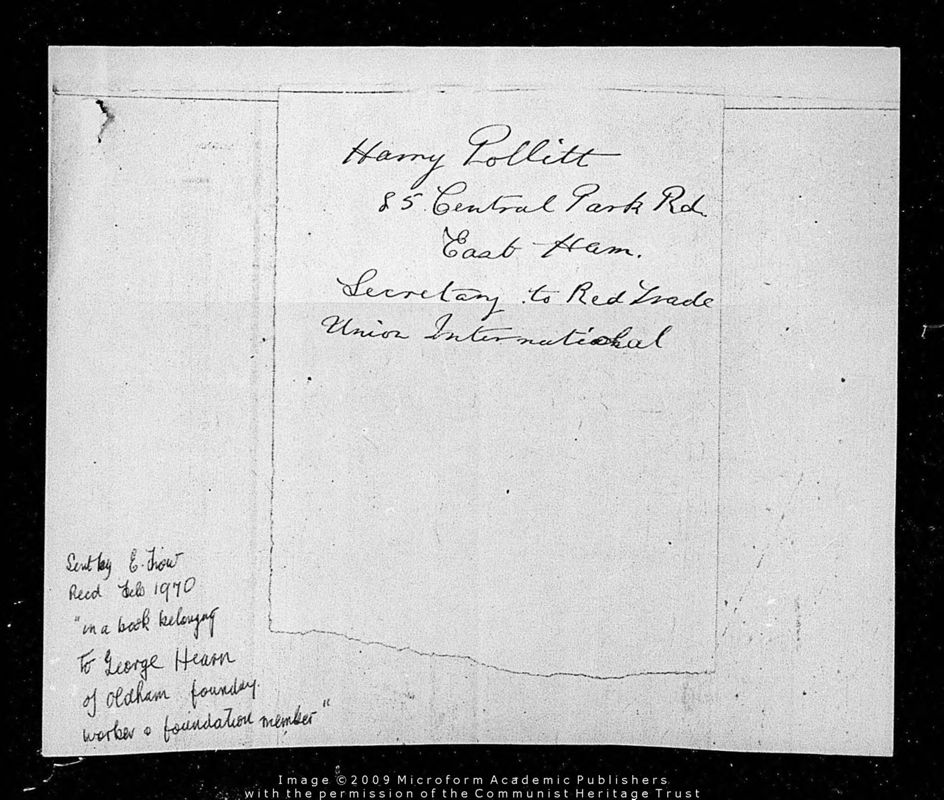 Harry Pollitt
85 Central Park Rd.
East Ham.
Secretary to Red Trade
Union International
Sent by E. Frow
Recd Feb 1970
"in a book belonging
to George Hearn
of Oldham foundry
worker & foundation member"
Image ©2009 Microform Academic Publishers
with the permission of the Communist Heritage Trust